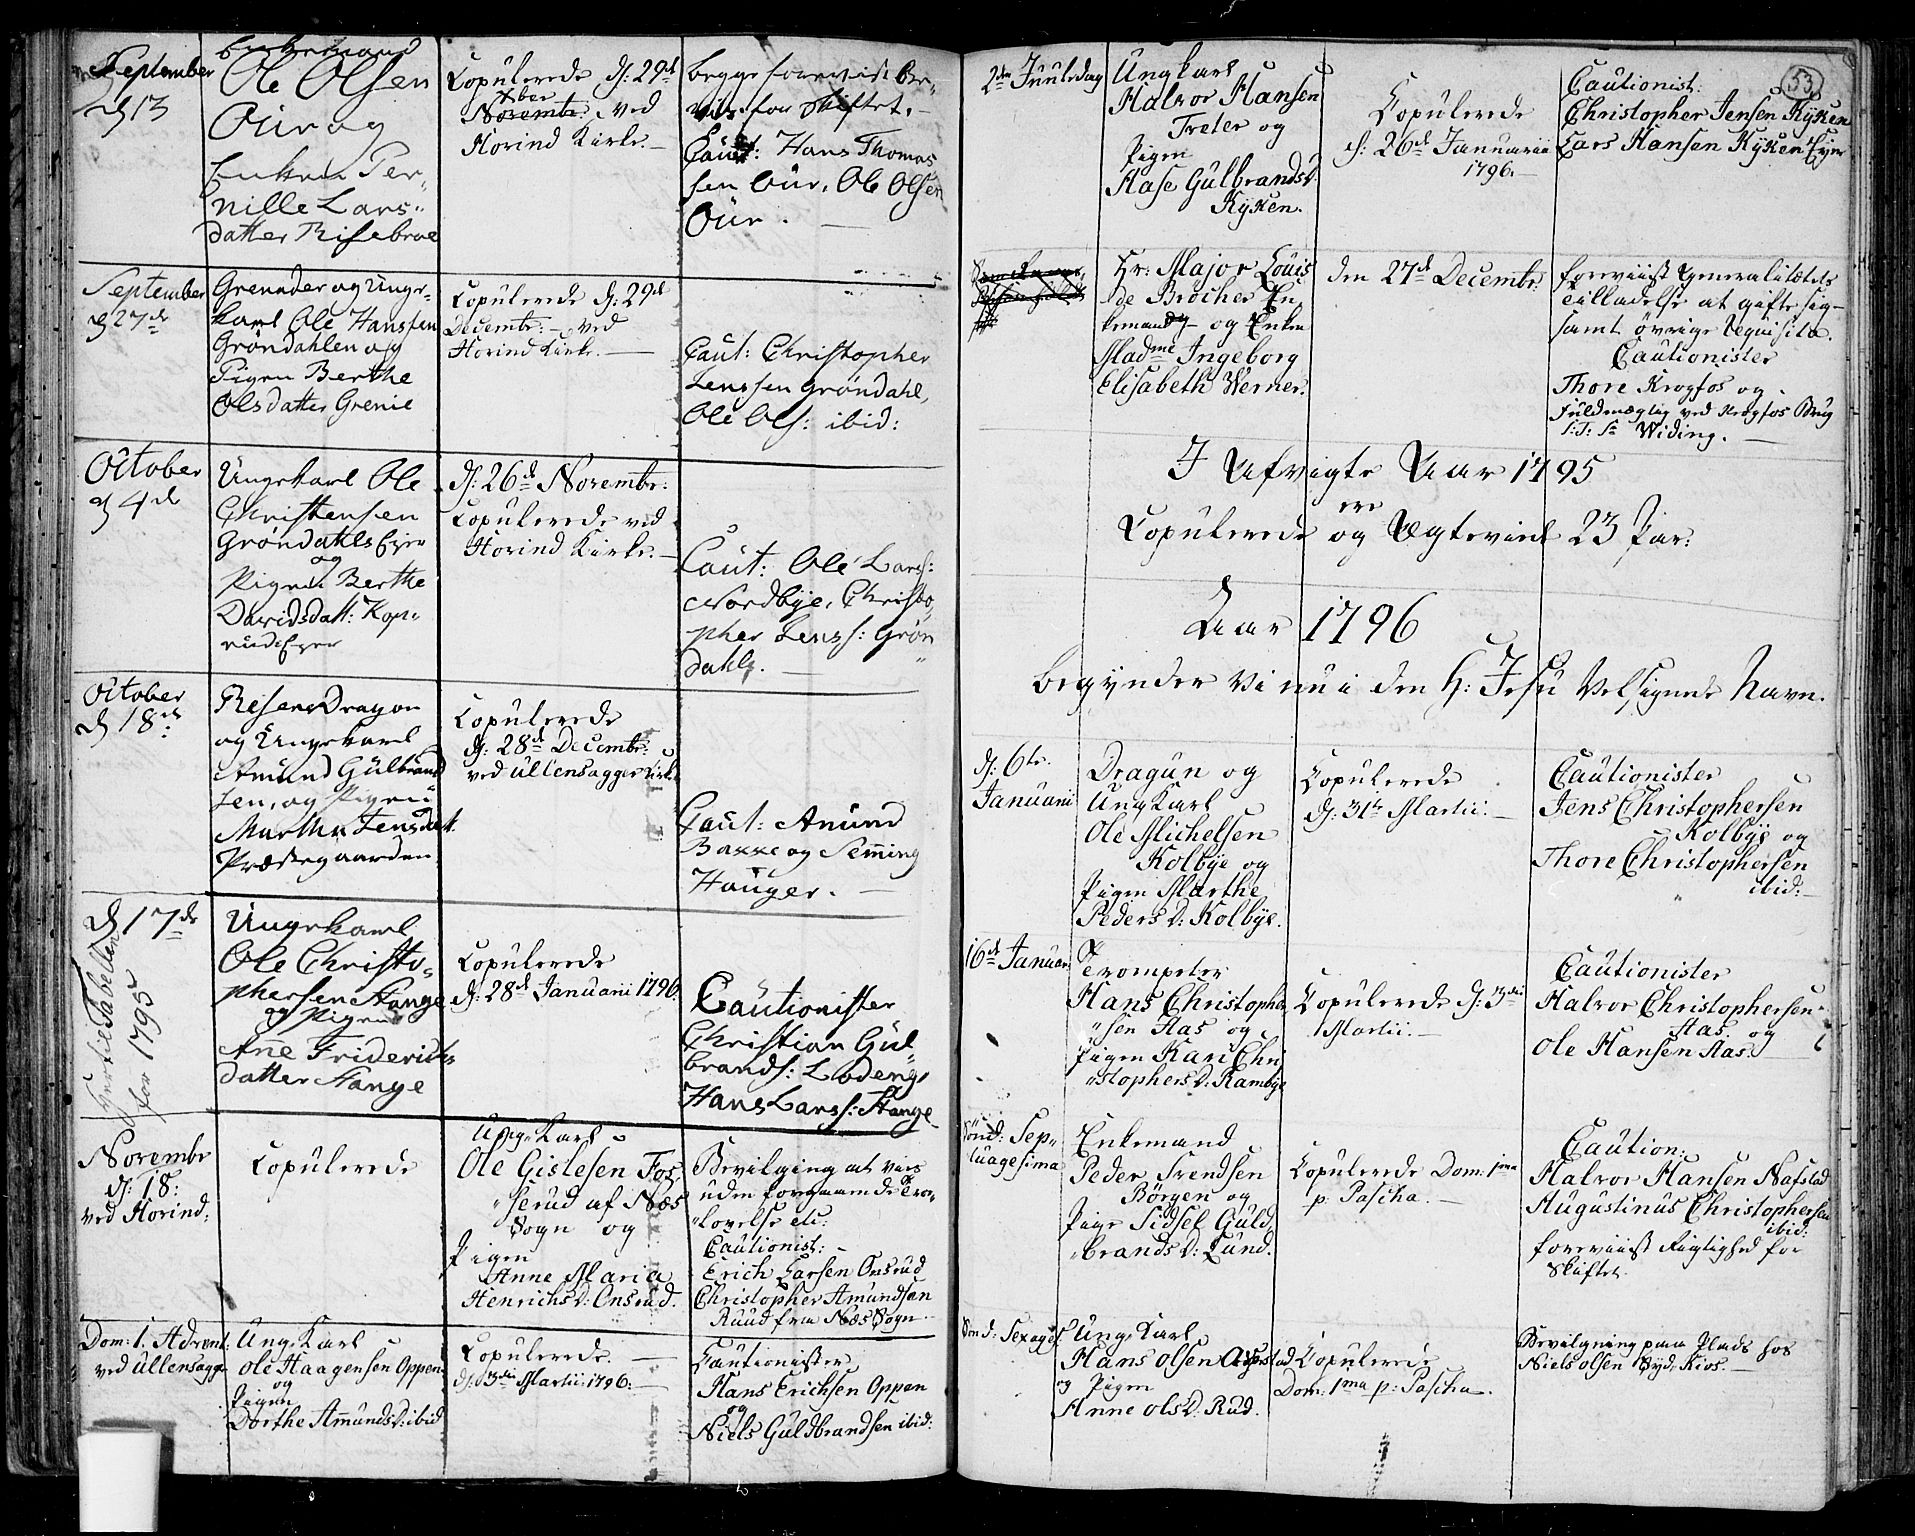 September
d 13
Enkemand
Ole Olsen
Our og
Enken Per-
nille Lars-
datter Risebroe
Copulerede d: 29d
Xber
Novembr: ved
Hovind Kirke.
begge foreviist Be-
viis for Skiftet.
Caut: Hans Thomas
sen Our, Ole Olsen
Our.
September
d 27de
Grenader og Unge-
karl Ole Hanssen
Grøndahlen og
Pigen Berthe
Olsdatter Grenie
Copulerede d: 29d
Decembr: ved
Hovind Kirke.
Caut: Christopher
Jenssen Grøndahl,
Ole Ols: ibid:
October
d 4de
Ungekarl Ole
Christensen
Grøndahls Ejer
og
Pigen Berthe
Davidsdatt: Kop-
rud Ejer
d: 26d Novembr:
Copulerede ved
Hovind Kirke.
Caut: Ole Larss:
Nordbye, Christo-
pher Jenss: Grøn
dahls.
October
d 18de
Reserve Dragon
og Ungekarl
Amund Gulbrand
sen, og Pigen
Martha Jensdatt.
Præstegaarden
Copulerede
d: 28d Decembr:
ved Ullensagger Kirke
Caut: Amund
Bakke og Semming
Hauger.
d 17de
Ført til Tabellen
for 1795
Ungekarl
Ole Christo-
phersen Stange
og Pigen
Anne Friderichs
datter Stange
Copulerede
d: 28d Januarii 1796.
Cautionister
Christian Gul-
brands: Lodeng,
Hans Larss: Stange
Novembr
d: 18:
ved Hovind:
Copulerede
Unge Karl
Ole Gislesen Fos-
serud af Næs
Sogn og
Pigen
Anne Maria
Henrichs D: Onsrud.
Bevilging at vies
uden foregaaende Tro-
lovelse etc:
Cautionist:
Erich Larsen Onsrud
Christopher Amundsen
Ruud fra Næs Sogn
Dom: 1. Advent:
ved Ullensagg
Ung Karl
Ole Haagensen Oppen
og
Pigen
Dorthe Amunds D: ibid
Copulerede.
d: 3die Martii 1796.
Cautionister
Hans Erichsen Oppen
og
Niels Guldbrandsen ibid:
53
2den Juuledag
Ungkarl
Halvor Hansen
Treter og
Pigen
Aase Gulbrands D.
Kyken.
Copulerede
d: 26d Januarii
1796.
Cautionist:
Christopher Jensen Kyken
Lars Hansen Kyken Ejer
Hr: Major Louis
de Brocher En-
kemand og Enken
Madme Ingeborg
Elisabeth Werner.
den 27d Decembr:
foreviist Generalitætets
Tilladelse at gifte sig
samt øvrige Requisita.
Cautionister
Thore Krogfos og
Fuldmægtig ved Krogfos Brug
S: T: Sr Widing.
I Afvigte Aar 1795
ere
Copulerede og Ægteviede 23 Par.
Aar 1796
begynder vi nu i den H: Jesu Velsignede Navn.
d: 6te
Januarii
Dragun og
Ung Karl
Ole Michelsen
Kolbye og
Pigen Marthe
Peders D: Kolbye.
Copulerede
d: 31te Martii.
Cautionister
Jens Christophersen
Kolbye og
Thore Christophersen
ibid:
16d Januar:
Trompeter
Hans Christopher
sen Aas og
Pigen Kari Chri
stophers D: Rambye
Copulerede d: 3die
Martii.
Cautionister
Halvor Christophersen
Aas og
Ole Hansen Aas.
Sønd: Sep-
tuagesima
Enkemand
Peder Svendsen
Børgen og
Pige Sidsel Guld-
brands D: Lund.
Copulerede Dom: 1ma
p: Pascha.
Caution:
Halvor Hansen Nafstad
Augustinus Christophersen
ibid:
foreviist Rigtighed for
Skiftet.
Sønd: Sexages:
Ung Karl
Hans Olsen
og Pigen
Anne Ols D: Rud.
Copulerede
Dom: 1ma p: Pascha.
Bevilgning paa Plads hos
Niels Olsen Syd Kios.